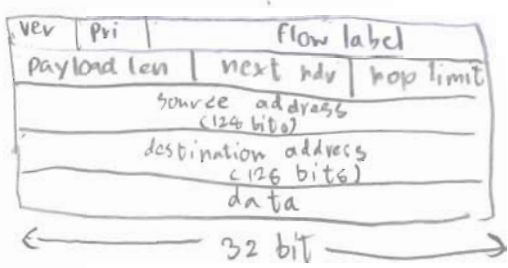 ver pri flow label
payload len next hdr hop limit
source address
(128 bits)
destination address
(128 bits)
data
32 bit